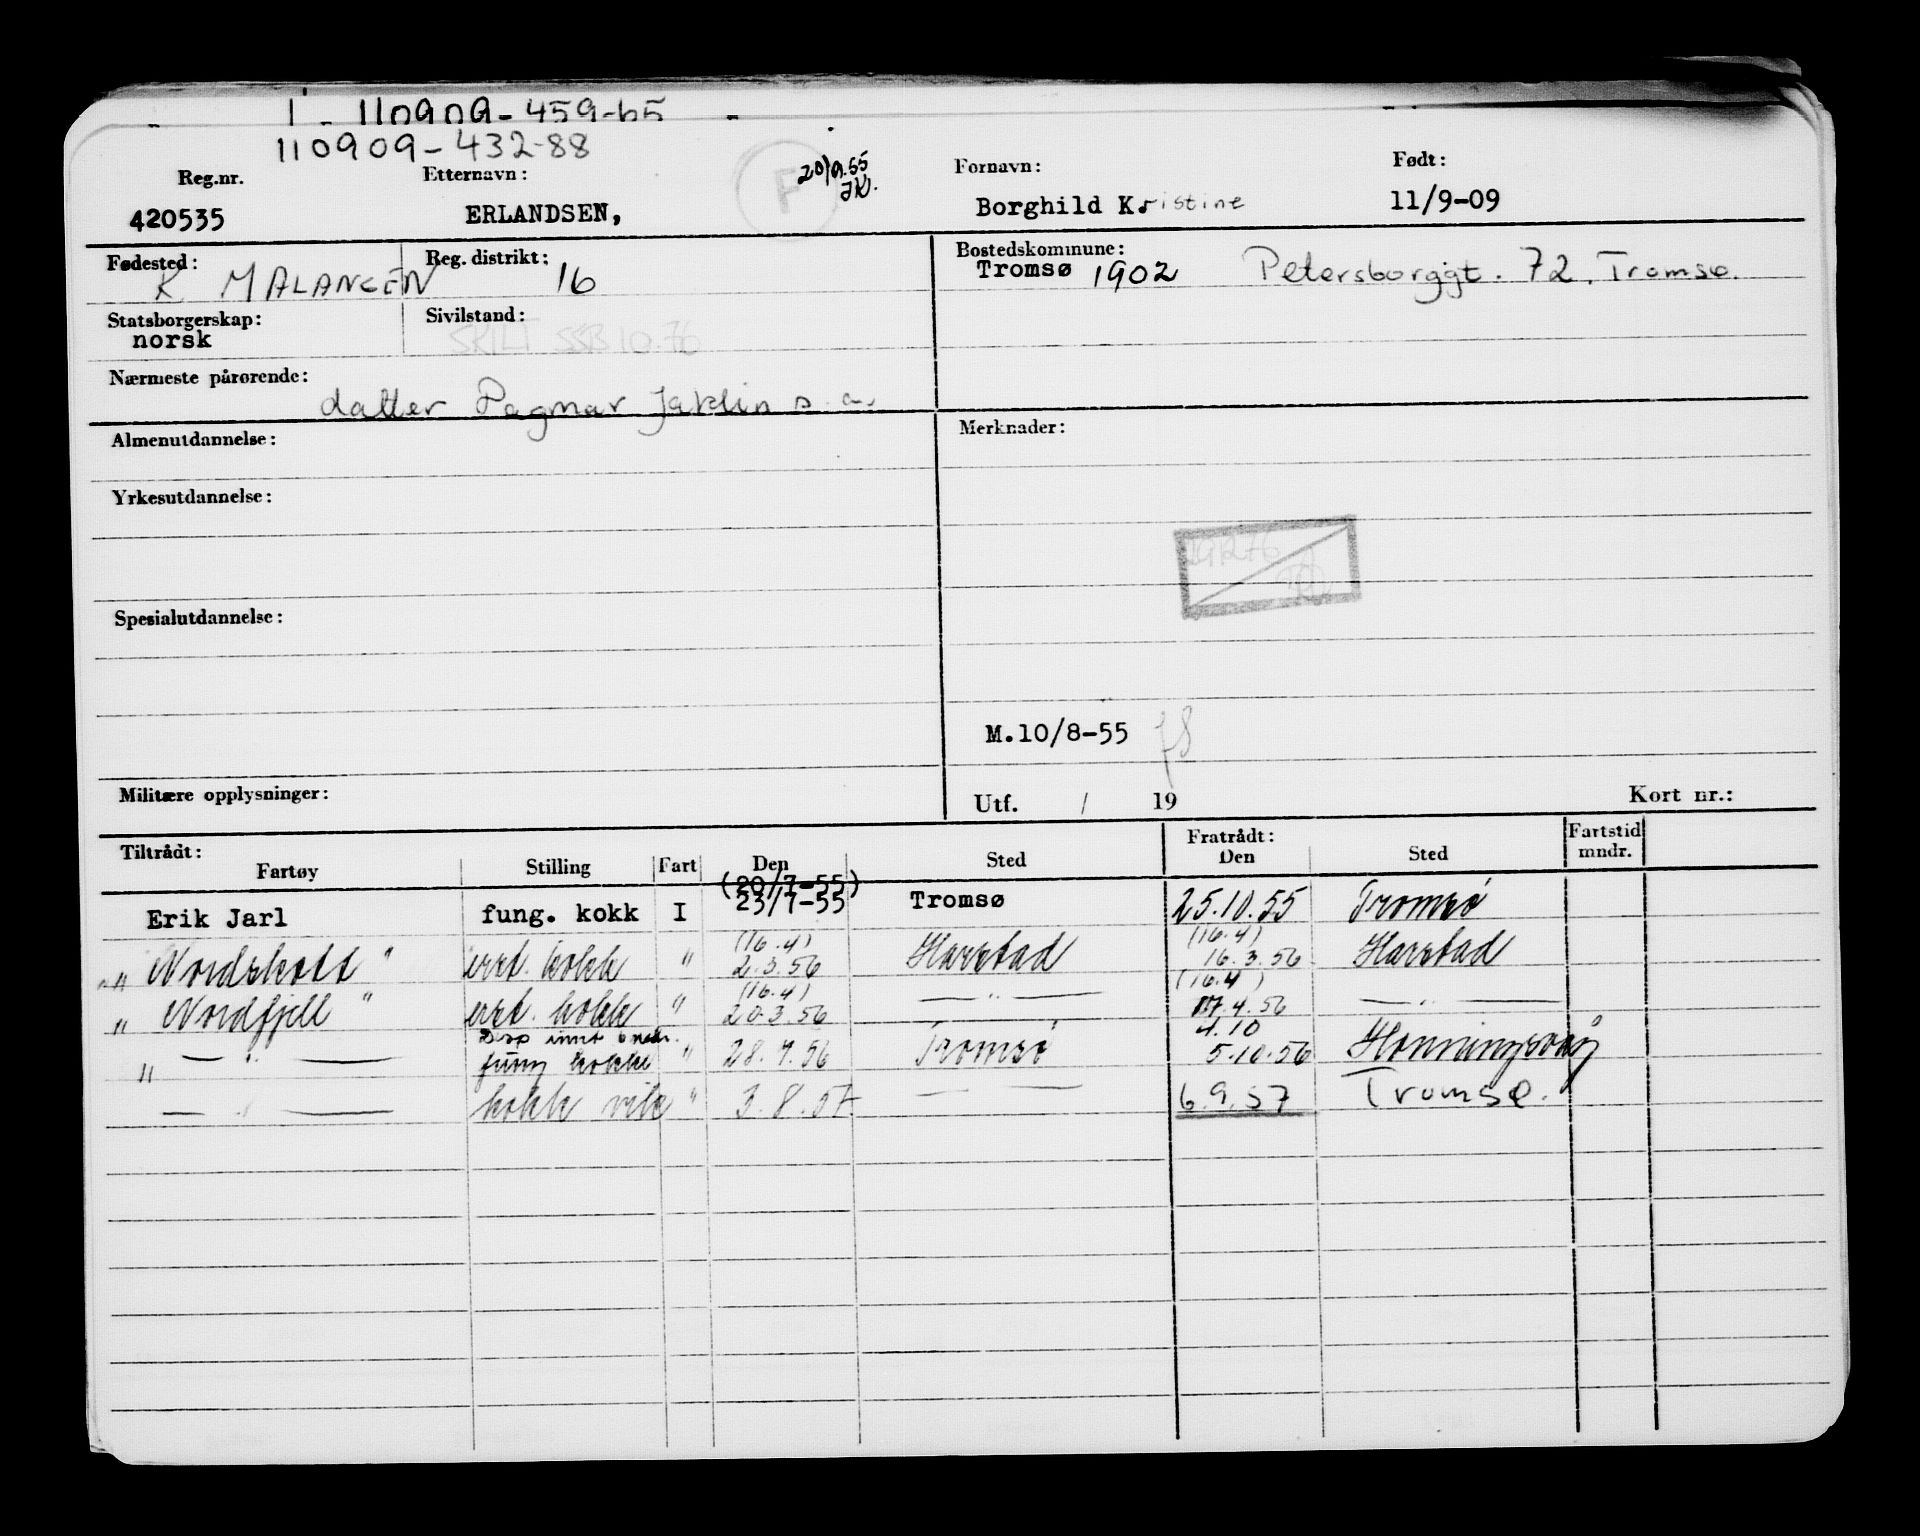 1 - 110909-459-65
110909-432-88
Reg.nr. Etternavn: F 20/9.55 Fornavn: Født:
420535 ERLANDSEN, Borghild Kristine 11/9-09
Fødested: K MALANGEN Reg. distrikt: 16 Bostedskommune:
Tromsø 1902 Petersborggt. 72, Tromsø.
Statsborgerskap: Sivilstand:
norsk SKILT SSB 10.76
Nærmeste pårørende:
datter Dagmar Jaklin s.a.
Almenutdannelse: Merknader:
Yrkesutdannelse:
Spesialutdannelse:
M.10/8-55
Militære opplysninger: Utf. / 19 Kort nr.:
Tiltrådt: Fratrådt: Fartstid
Fartøy Stilling Fart Den Sted Den Sted mndr.
(20/7-55)
Erik Jarl fung. kokk I 23/7-55 Tromsø 25.10.55 Tromsø
(16.4) (16.4)
" Nordskott " erst. kokk " 2.3.56 Harstad 16.3.56 Harstad
(16.4) (16.4)
" Nordfjell " erst. kokk " 20.3.56 — " — 17.4.56 — " —
Disp innt 6 mdr. 4.10
" — " — fung kokk " 28.7.56 Tromsø 5.10.56 Honningsvåg
— " — kokk vik " 3.8.57 — — 6.9.57 Tromsø.